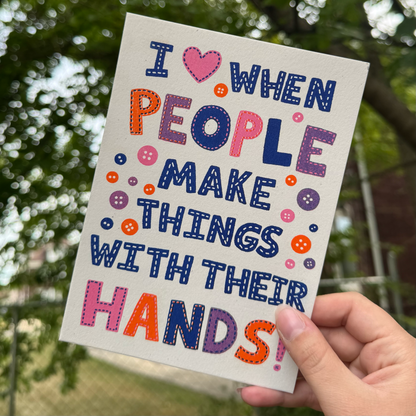 I ♥ WHEN
PEOPLE
MAKE
THINGS
WITH THEIR
HANDS!